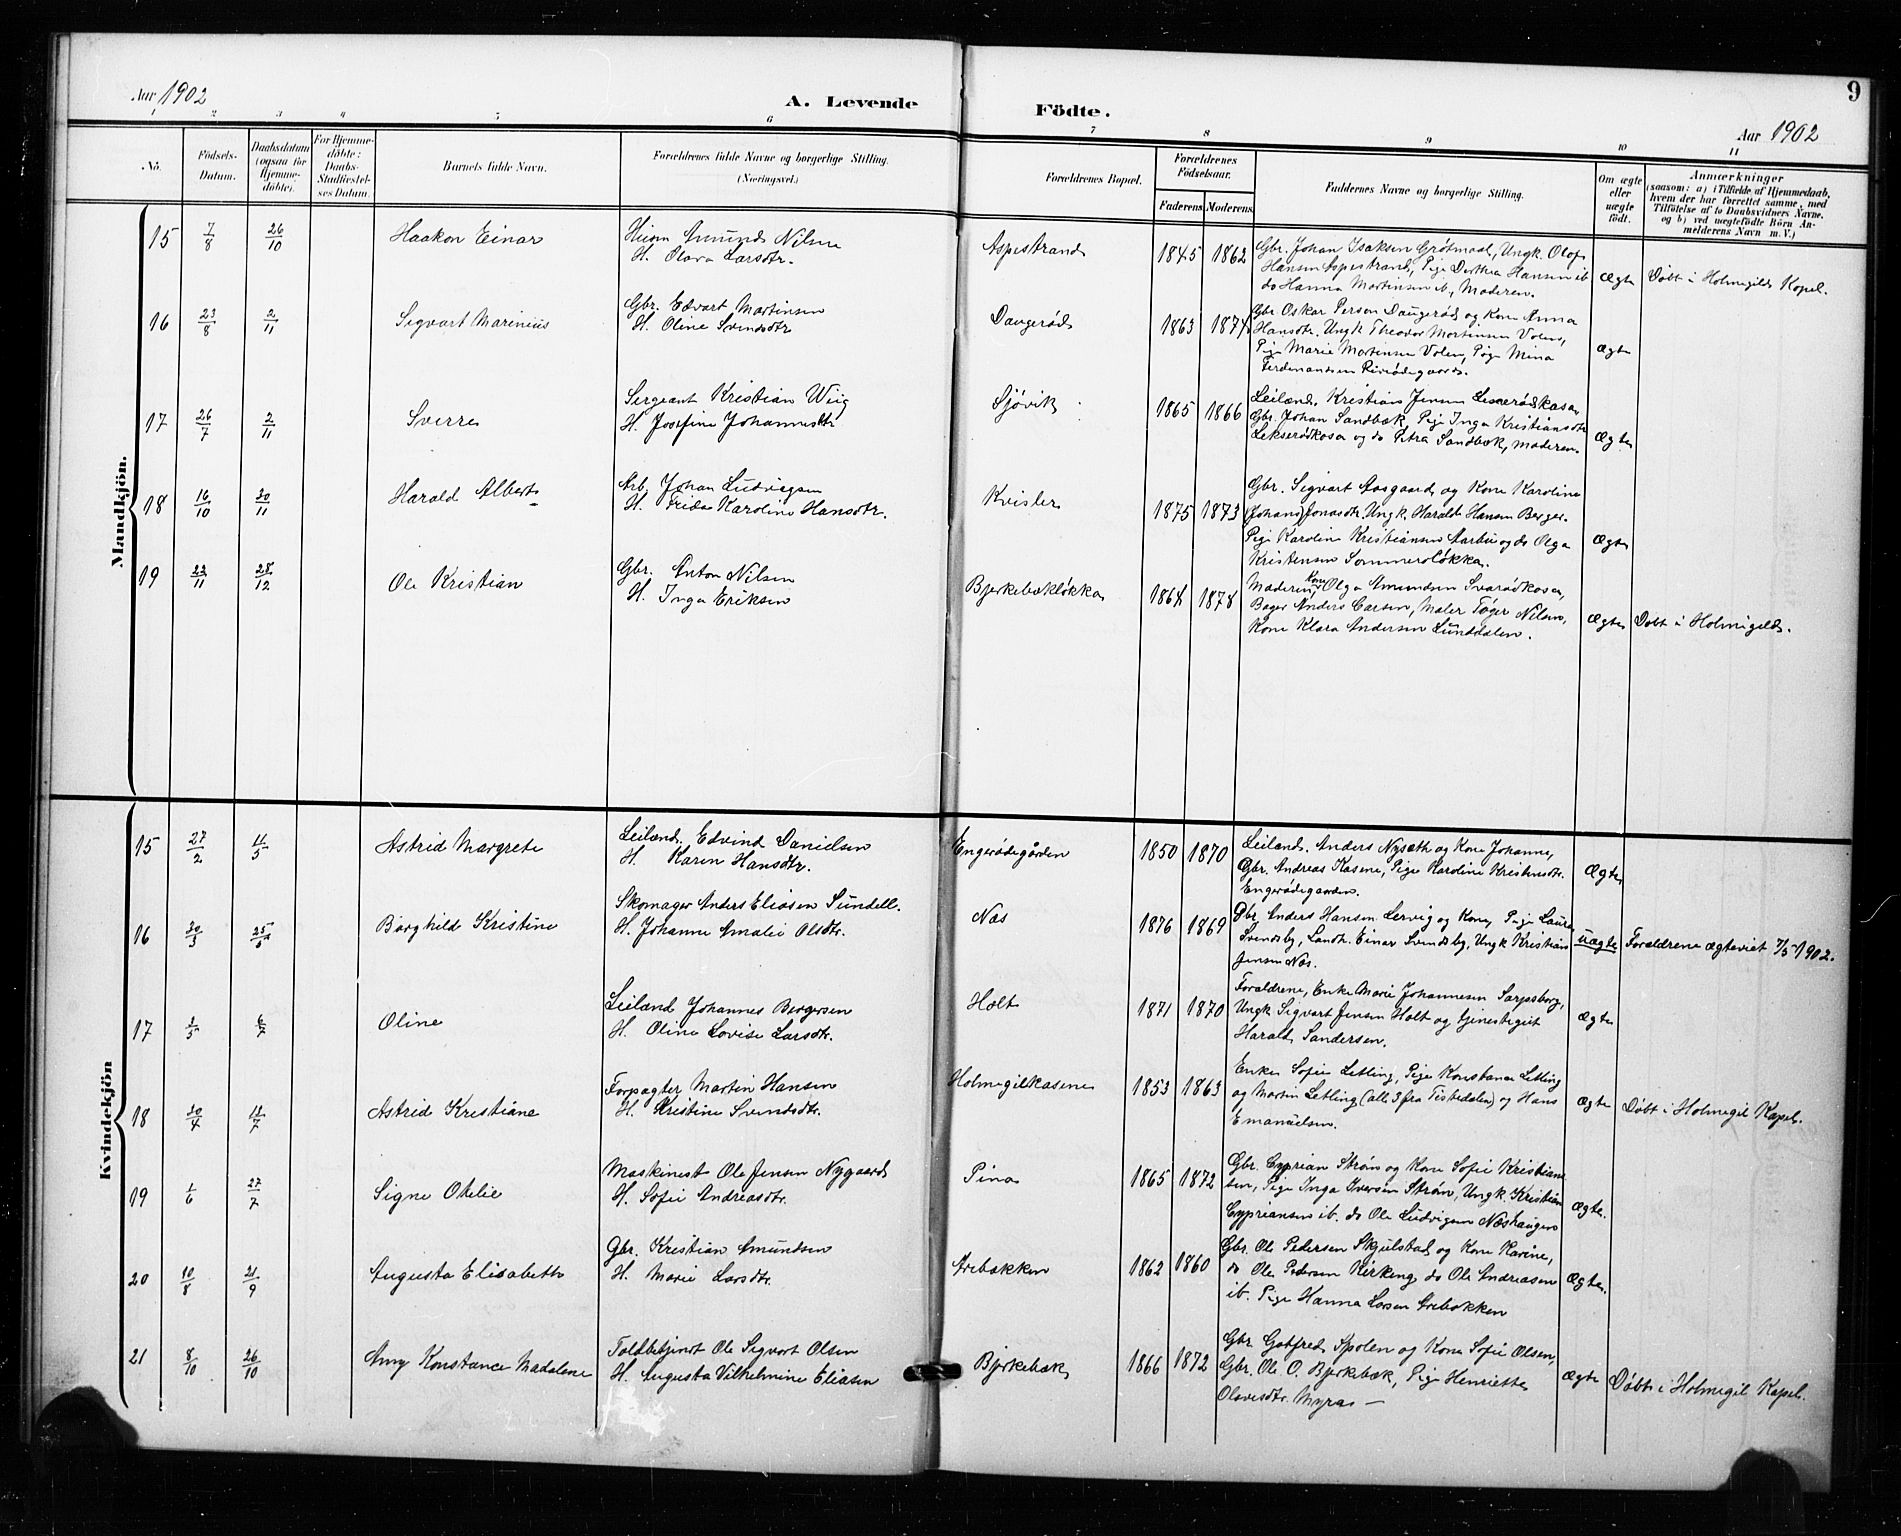 Aar 1902
A. Levende Födte.
9
Aar 1902
1 2 3 4 5 6 7 8 9 10 11
No.
Födsels-Datum.
Daabsdatum (ogsaa for Hjemmedöbte).
For Hjemmedöbte: Daabs-Stadfæstelses Datum.
Barnets fulde Navn.
Forældrenes fulde Navne og borgerlige Stilling. (Næringsvei.)
Forældrenes Bopæl.
Forældrenes Födselsaar.
Faderens
Moderens
Faddernes Navne og borgerlige Stilling.
Om ægte eller uægte födt.
Anmærkninger
(saasom: a) i Tilfælde af Hjemmedaab, hvem der har forrettet samme, med Tilföielse af to Daabsvidners Navne, og b) ved uægtefödte Börn Anmelderens Navn m. V.)
Mandkjön.
15 7/8 26/10 Haakon Einar
Amund Nilsen
H. Olava Larsdtr.
Aspestrand 1845 1862
Gbr. Johan Isaksen Grötmaal, Ungk. Olof
Hansen Aspestrand, Pige Dorthea Hansen ib
do Hanna Martinsen ib, Moderen.
Ægte
Døbt i Holmegilds Kapel.
16 23/8 2/11 Sigvart Marinius
Gbr. Edvart Martinsen
H. Oline Svendsdtr
Daugerød 1863 1874
Gbr Oskar Person Daugerød og Kone Anna
Hansdtr. Ungk Theodor Martinsen Volen,
Pige Marie Martinsen Volen, Pige Mina
Ferdinandsen
Ægte
17 26/7 2/11 Sverre
Sergeant Kristian Wiig
H. Josefine Johannesdtr
Sjøvik 1865 1866
Leilænd. Kristian Jensen
Gbr. Johan Sandbæk, Pige Inga Kristiansdtr
Lekserødkasa og do Petra Sandbæk, Moderen.
Ægte
18 16/10 30/11 Harald Albert
Arb. Johan Ludvigsen
H. Frida Karoline Hansdtr.
Kvisler 1875 1873
Gbr. Sigvart Aasgaard og Kone Karoline
(Johans) Jonasdtr. Ungk. Harald Hansen Berger.
Pige Karoline Kristiansen Aarbu og do Olga
Kristensen Sommerløkka.
Ægte
19 22/11 28/12 Ole Kristian
Gbr. Anton Nilsen
H. Inga Eriksen
Bjerkebækløkka 1864 1878
Moderen, Kone Olga Amundsen Svarødkasa,
Bager Anders Carsen, Maler Tøger Nilsen,
Kone Klara Andersen Lunddalen.
Ægte
Døbt i Holmegild.
Kvindekjön
15 27/2 11/5 Astrid Margrete
Leilænd. Edvind Danielsen
H. Karen Hansdtr.
Engerødegården 1850 1870
Leilænd. Anders Nysæth og Kone Johanne,
Gbr. Andreas Kasene, Pige Karoline Kristensdtr.
Engerødegaarden.
Ægte
16 30/3 25/5 Borghild Kristine
Skomager Anders Eliasen Sundell.
H. Johanne Amalie Olsdtr.
Næs 1876 1869
Gbr Anders Hansen Lervig og Kone, Pige Laura
Svendsby, Landh. Einar Svendsby, Ungk Kristian
Jensen Næs.
uægte
Forældrene ægteviet 7/5 1902.
17 1/5 6/7 Oline
Leilænd Johannes Bergersen
H. Oline Lovise Larsdtr.
Holt 1871 1870
Forældrene, Enke Marie Johannesen Sarpsborg,
Ungk Sigvart Jensen Holt og tjenestegut
Harald Sandersen.
Ægte
18 30/4 13/7 Astrid Kristiane
Forpagter Martin Hansen
H. Kristine Svendsdtr.
Holmegilkasene 1853 1863
Enke Sofie Letling, Pige Konstance Letling
og Martin Letling (alle 3 fra Tistedalen) og Hans
Emanuelsen.
Ægte
Døbt i Holmegil Kapel.
19 1/6 27/7 Signe Otelie
Maskinist Ole Jensen Nygaard
H. Sofie Andreasdtr.
Pina 1865 1872
Gbr. Cyprian Strøm og Kone Sofie Kristian
sen, Pige Inga Iversen Strøm, Ungk. Kristian
Cypriansen ib. do Ole Ludvigsen Næshaugen
Ægte.
20 10/8 21/9 Augusta Elisabeth
Gbr. Kristian Amundsen
H. Marie Larsdtr.
Arebakken 1862 1860
Gbr. Ole Pedersen Skjulstad og Kone Karine,
do Ole Pedersen Kirkeng, do Ole Andreasen
ib. Pige Hanna Larsen Arebakken
Ægte.
21 8/10 26/10 Amy Konstance Madalene
Toldbetjent Ole Sigvart Olsen
H. Augusta Vilhelmine Eliasen
Bjerkebæk 1866 1872
Gbr Gotfred Spolen og Kone Sofie Olsen,
Gbr. Ole O. Bjerkebæk, Pige Henriette
Olavesdtr. Myra —
Ægte
Døbt i Holmegil Kapel.